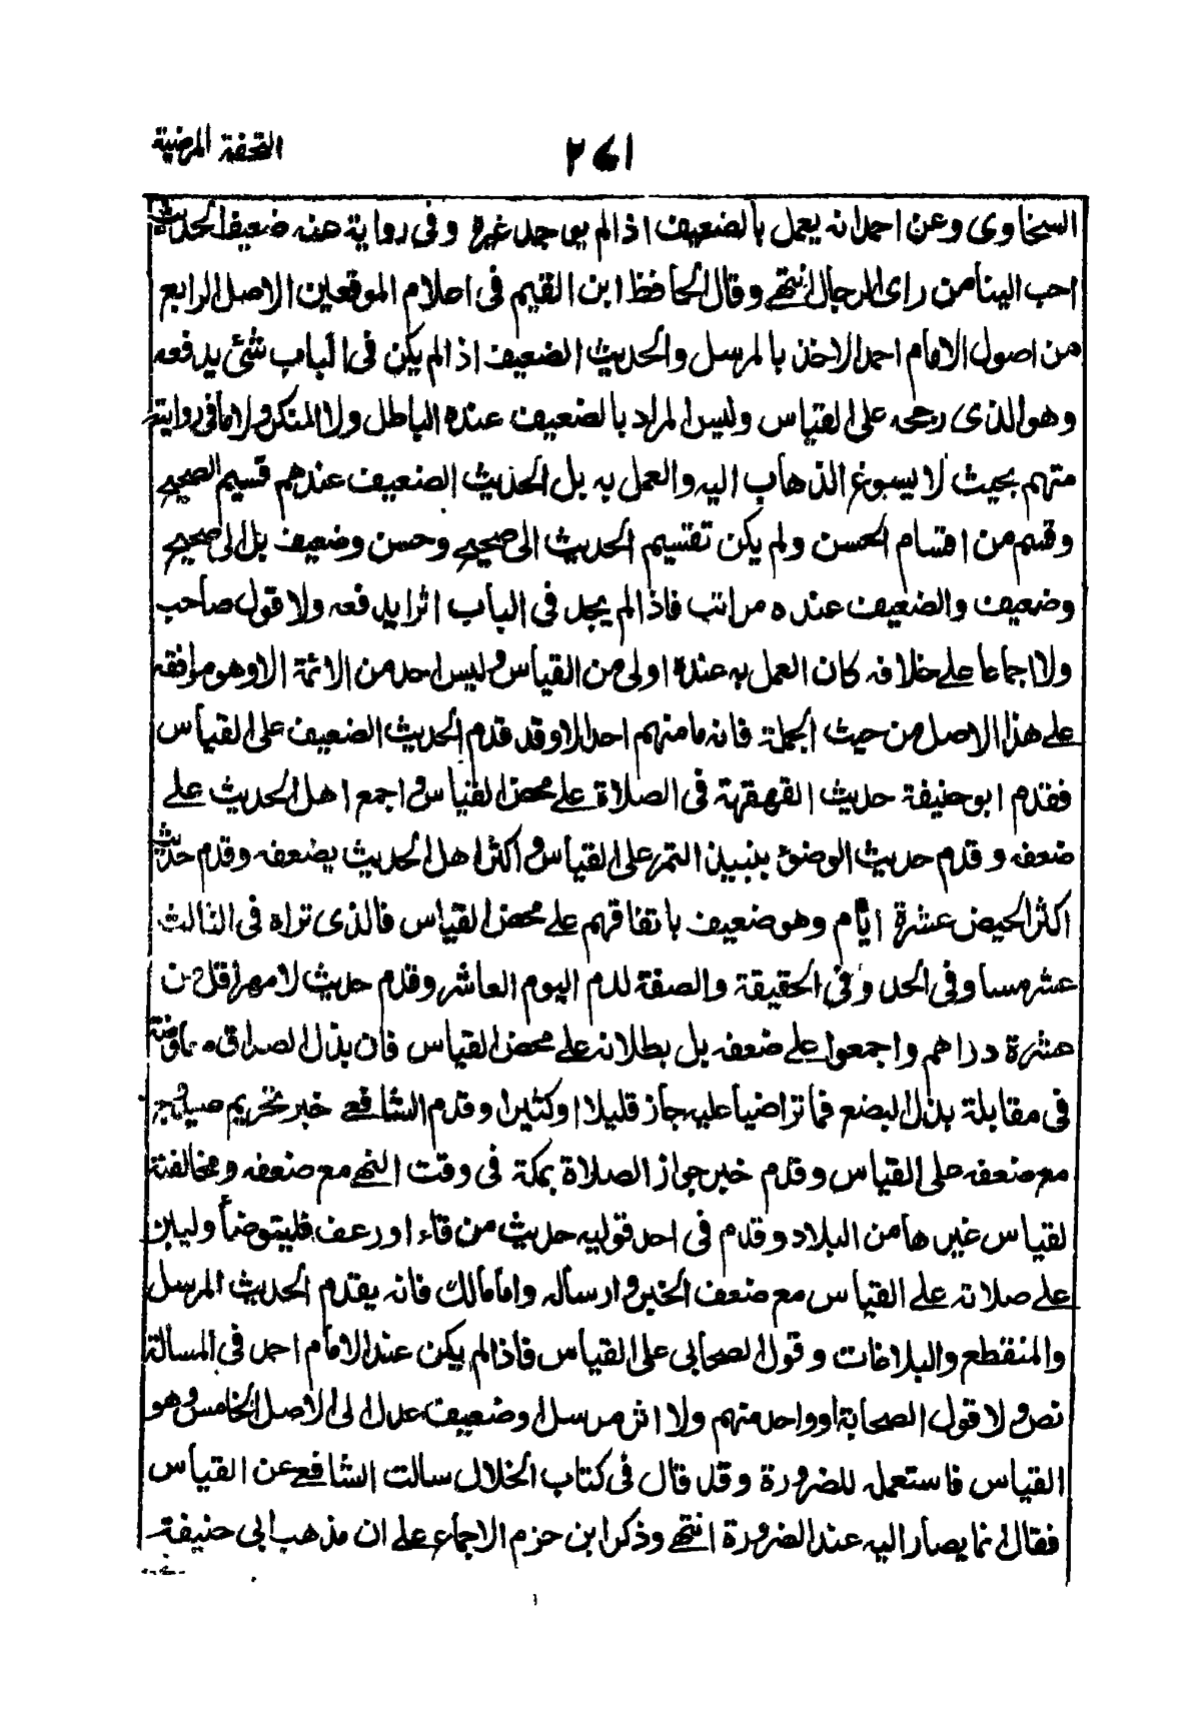 التحفة المرضية
٢٤١
السخاوى وعن احمد انه يعمل بالضعيف اذا لم يوجد غيره وفى رواية عنه ضعيف الحديث
احب الينا من راى الرجال انتهى وقال الحافظ ابن القيم فى اعلام الموقعين الاصل الرابع
من اصول الامام احمد الاخذ بالمرسل والحديث الضعيف اذا لم يكن فى الباب شئ يدفعه
وهو الذى رجحه على القياس وليس المراد بالضعيف عنده الباطل ولا المنكر ولا ما فى روايته
متهم بحيث لا يسوغ الذهاب اليه والعمل به بل الحديث الضعيف عندهم قسيم الصحيح
وقسم من اقسام الحسن ولم يكن تقسيم الحديث الى صحيح وحسن وضعيف بل الى صحيح
وضعيف والضعيف عنده مراتب فاذا لم يجد فى الباب اثرا يدفعه ولا قول صاحب
ولا اجماعا على خلافه كان العمل به عنده اولى من القياس وليس احد من الائمة الا وهو موافقه
على هذا الاصل من حيث الجملة فانه ما منهم احد الا وقد قدم الحديث الضعيف على القياس
فقدم ابو حنيفة حديث القهقهة فى الصلاة على محض القياس واجمع اهل الحديث على
ضعفه وقدم حديث الوضوء بنبيذ التمر على القياس واكثر اهل الحديث يضعفه وقدم حديث
اكثر الحيض عشرة ايام وهو ضعيف باتفاقهم على محض القياس فالذى تراه فى الثالث
عشر مساو فى الحد وفى الحقيقة والصفة لدم اليوم العاشر وقدم حديث لا مهر اقل من
عشرة دراهم واجمعوا على ضعفه بل بطلانه على محض القياس فان بذل الصداق معاوضة
فى مقابلة بذل البضع فما تراضيا عليه جاز قليلا او كثيرا وقدم الشافعى خبر تحريم صيد وج
مع ضعفه على القياس وقدم خبر جواز الصلاة بمكة فى وقت النهى مع ضعفه ومخالفته
لقياس غيرها من البلاد وقدم فى احد قوليه حديث من قاء او رعف فليتوضأ وليبن
على صلاته على القياس مع ضعف الخبر وارساله واما مالك فانه يقدم الحديث المرسل
والمنقطع والبلاغات وقول الصحابى على القياس فاذا لم يكن عند الامام احمد فى المسألة
نص ولا قول الصحابة او واحد منهم ولا اثر مرسل او ضعيف عدل الى الاصل الخامس وهو
القياس فاستعمله للضرورة وقد قال فى كتاب الخلال سالت الشافعى عن القياس
فقال انما يصار اليه عند الضرورة انتهى وذكر ابن حزم الاجماع على ان مذهب ابى حنيفة